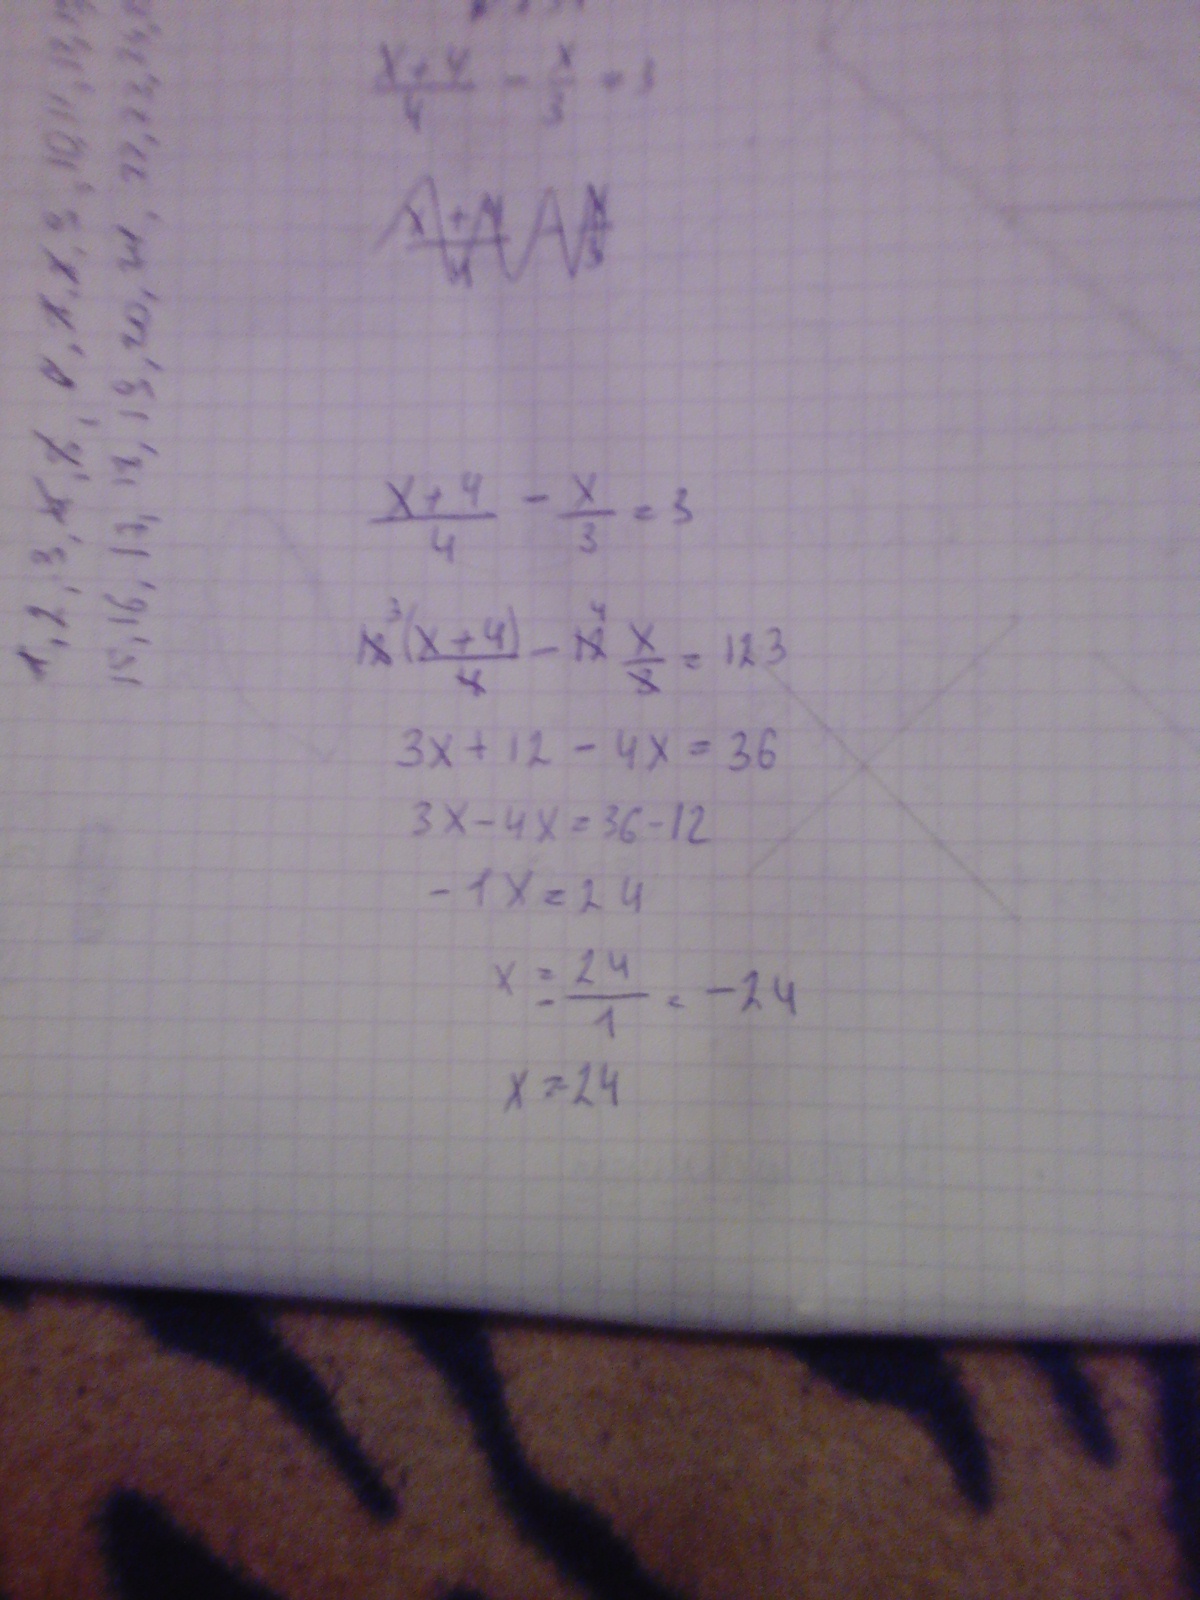 x+4/4 - x/3 = 3
x+4/4 - x/3
x+4/4 - x/3 = 3
12³(x+4)/4 - 12⁴ x/3 = 123
3x+12-4x=36
3x-4x=36-12
-1x=24
x = 24/-1 = -24
x=24
1, 2, 3,
9, 10, 11,
15, 16, 17, 18, 19, 20, 21, 22,